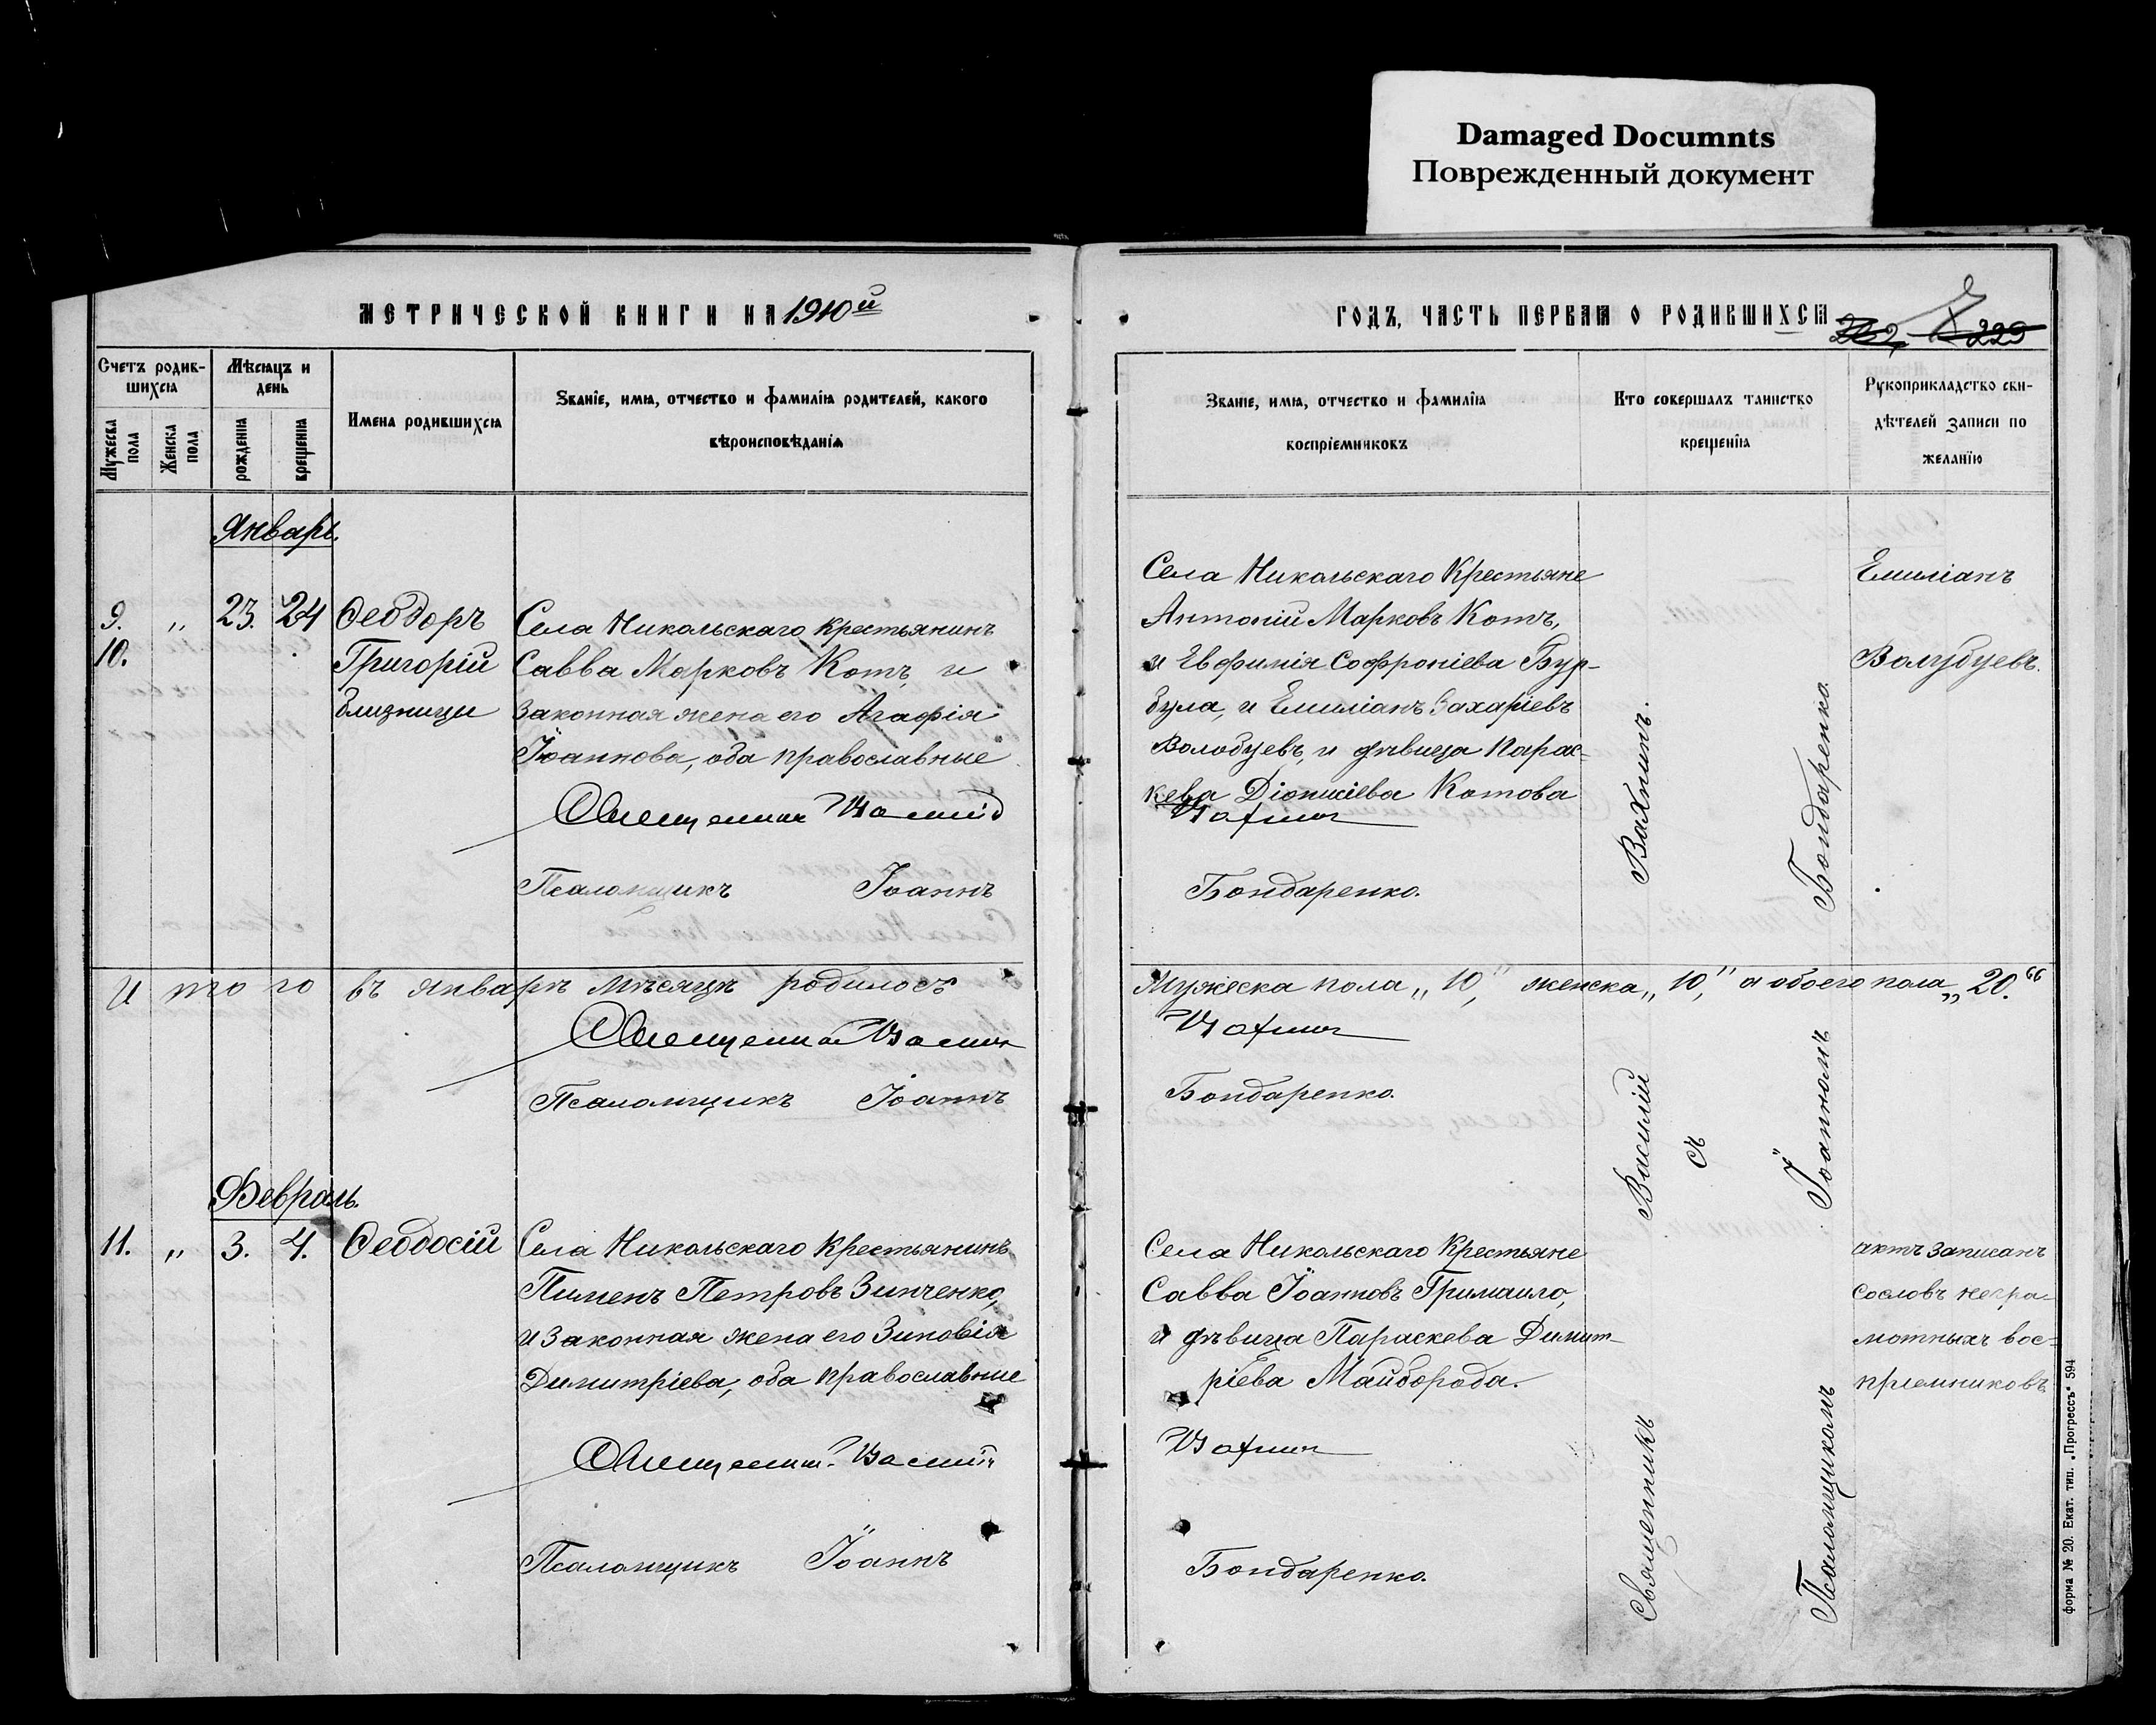 Damaged Documnts
Поврежденный документ
МЕТРИЧЕСКОЙ КНИГИ НА 1910й
ГОДЪ, ЧАСТЬ ПЕРВАЯ О РОДИВШИХСЯ
229
Счетъ родив-
шихся
Мужеска
пола
Женска
пола
Мѣсяцъ и
день
рожденія
крещенія
Имена родившихся
Званіе, имя, отчество и фамилія родителей, какого
вѣроисповѣданія
Званіе, имя, отчество и фамилія
воспріемниковъ
Кто совершалъ таинство
крещенія
Рукоприкладство сви-
дѣтелей записи по
желанію
Январь.
9. " 23. 24 Ѳеодоръ
10. Григорій
близнецы
Села Никольскаго крестьянинъ
Савва Марковъ Котъ, и
законная жена его Агафія
Іоаннова, оба православные
Священникъ Василій
Псаломщикъ Іоаннъ
Села Никольскаго Крестьяне
Антоній Марковъ Котъ,
и Евфимія Софроніева Бур-
була, и Емиліанъ Захаріевъ
Волобуевъ, и дѣвица Парас-
кева Діонисіева Котова
Вахнинъ
Бондаренко.
Емиліанъ
Волубуевъ.
Итого въ январѣ мѣсяцѣ родилось
Мужеска пола „10," женска „10," а обоего пола „20."
Священникъ Василій
Вахнинъ
Псаломщикъ Іоаннъ
Бондаренко.
Февраль.
11. " 3. 4. Ѳеодосій
Села Никольскаго крестьянинъ
Пименъ Петровъ Зинченко,
и законная жена его Зиновія
Димитріева, оба православные
Священникъ Василій
Псаломщикъ Іоаннъ
Села Никольскаго Крестьяне
Савва Іоанновъ Гримайло,
и дѣвица Параскева Димит-
ріева Майборода.
Вахнинъ
Бондаренко.
Священникъ Василій Вахнинъ.
съ
Псаломщикомъ Іоанномъ Бондаренко.
актъ записанъ
сословъ негра-
мотныхъ вос-
пріемниковъ
Форма № 20. Екат. тип. „Прогрессъ" 594